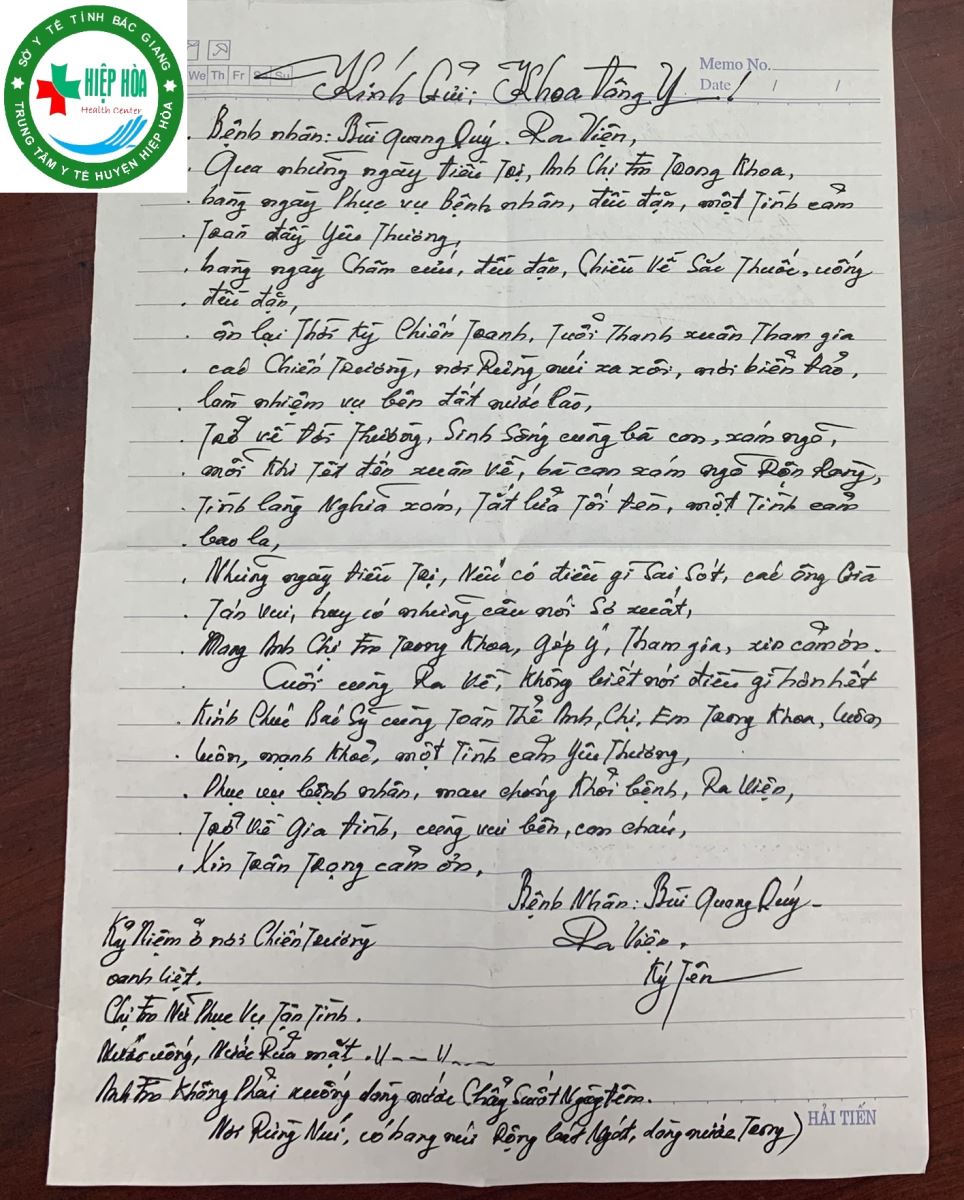 SỞ Y TẾ TỈNH BẮC GIANG
HIỆP HÒA
Health Center
TRUNG TÂM Y TẾ HUYỆN HIỆP HÒA
We Th Fr Sa Su
Memo No.
Date / /
Kính Gửi: Khoa Đông Y!
Bệnh nhân: Bùi Quang Quý. Ra Viện,
Qua những ngày điều Trị, Anh Chị Em Trong Khoa,
hàng ngày Phục vụ Bệnh nhân, đều đặn, một Tình cảm
Tràn đầy Yêu Thương,
hàng ngày Châm cứu, đều đặn, Chiều Về Sắc Thuốc, uống
đều đặn,
ôn lại Thời Kỳ Chiến Tranh, Tuổi Thanh xuân Tham gia
các Chiến Trường, nơi Rừng núi xa xôi, nơi biển Đảo,
làm nhiệm vụ bên đất nước Lào,
Trở về đời Thường, Sinh Sống cùng bà con, xóm ngõ,
mỗi Khi Tết đến xuân Về, bà con xóm ngõ Rộn Ràng,
Tình làng Nghĩa xóm, Tắt lửa Tối Đèn, một Tình cảm
bao la,
Những ngày điều Trị, Nếu có điều gì Sai Sót, các ông Già
Tán vui, hay có những câu nói Sơ xuất,
Mong Anh Chị Em Trong Khoa, Góp Ý, Tham gia, xin cảm ơn.
Cuối cùng Ra Về, Không biết nói điều gì hơn hết
Kính Chúc Bác Sỹ cùng Toàn Thể Anh, Chị, Em Trong Khoa, luôn
luôn, mạnh Khoẻ, một Tình cảm Yêu Thương,
Phục vụ bệnh nhân, mau chóng Khỏi bệnh, Ra Viện,
Trở Về Gia Đình, cùng vui bên, con cháu,
Xin Trân Trọng cảm ơn,
Bệnh Nhân: Bùi Quang Quý
Ra Viện,
Ký Tên
Kỷ Niệm ở nơi Chiến Trường
oanh liệt.
Chị Em Nữ Phục Vụ Tận Tình.
Nước uống, Nước Rửa mặt. // – – // – –
Anh Em Không Phải xuống dòng nước Chẩy Suốt Ngày Đêm.
Nơi Rừng Núi, có hang núi Rộng bát Ngát, dòng nước Trong)
HẢI TIẾN